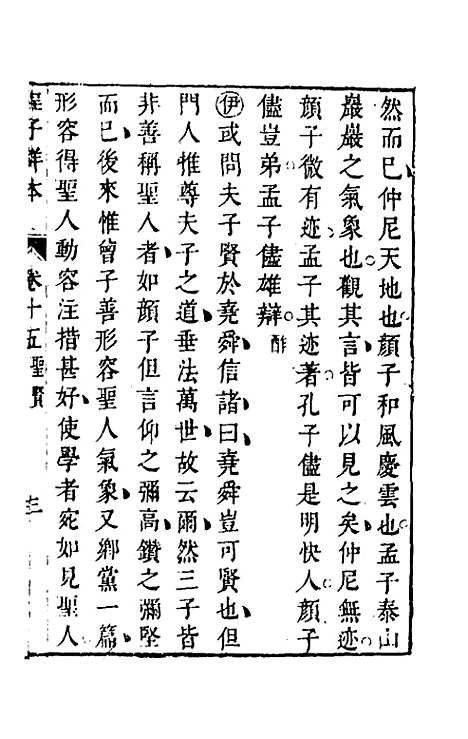 然而已仲尼天地也顔子和風慶雲也孟子泰山
巖巖之氣象也觀其言皆可以見之矣仲尼無迹
顔子微有迹孟子其迹著孔子儘是明快人顔子
儘豈弟孟子儘雄辯 酢
伊 或問夫子賢於堯舜信諸曰堯舜豈可賢也但
門人惟尊夫子之道垂法萬世故云爾然三子皆
非善稱聖人者如顔子但言仰之彌高鑽之彌堅
而已後來惟曾子善形容聖人氣象又鄉黨一篇
形容得聖人動容注措甚好使學者宛如見聖人
程子詳本 卷十五 聖賢 三